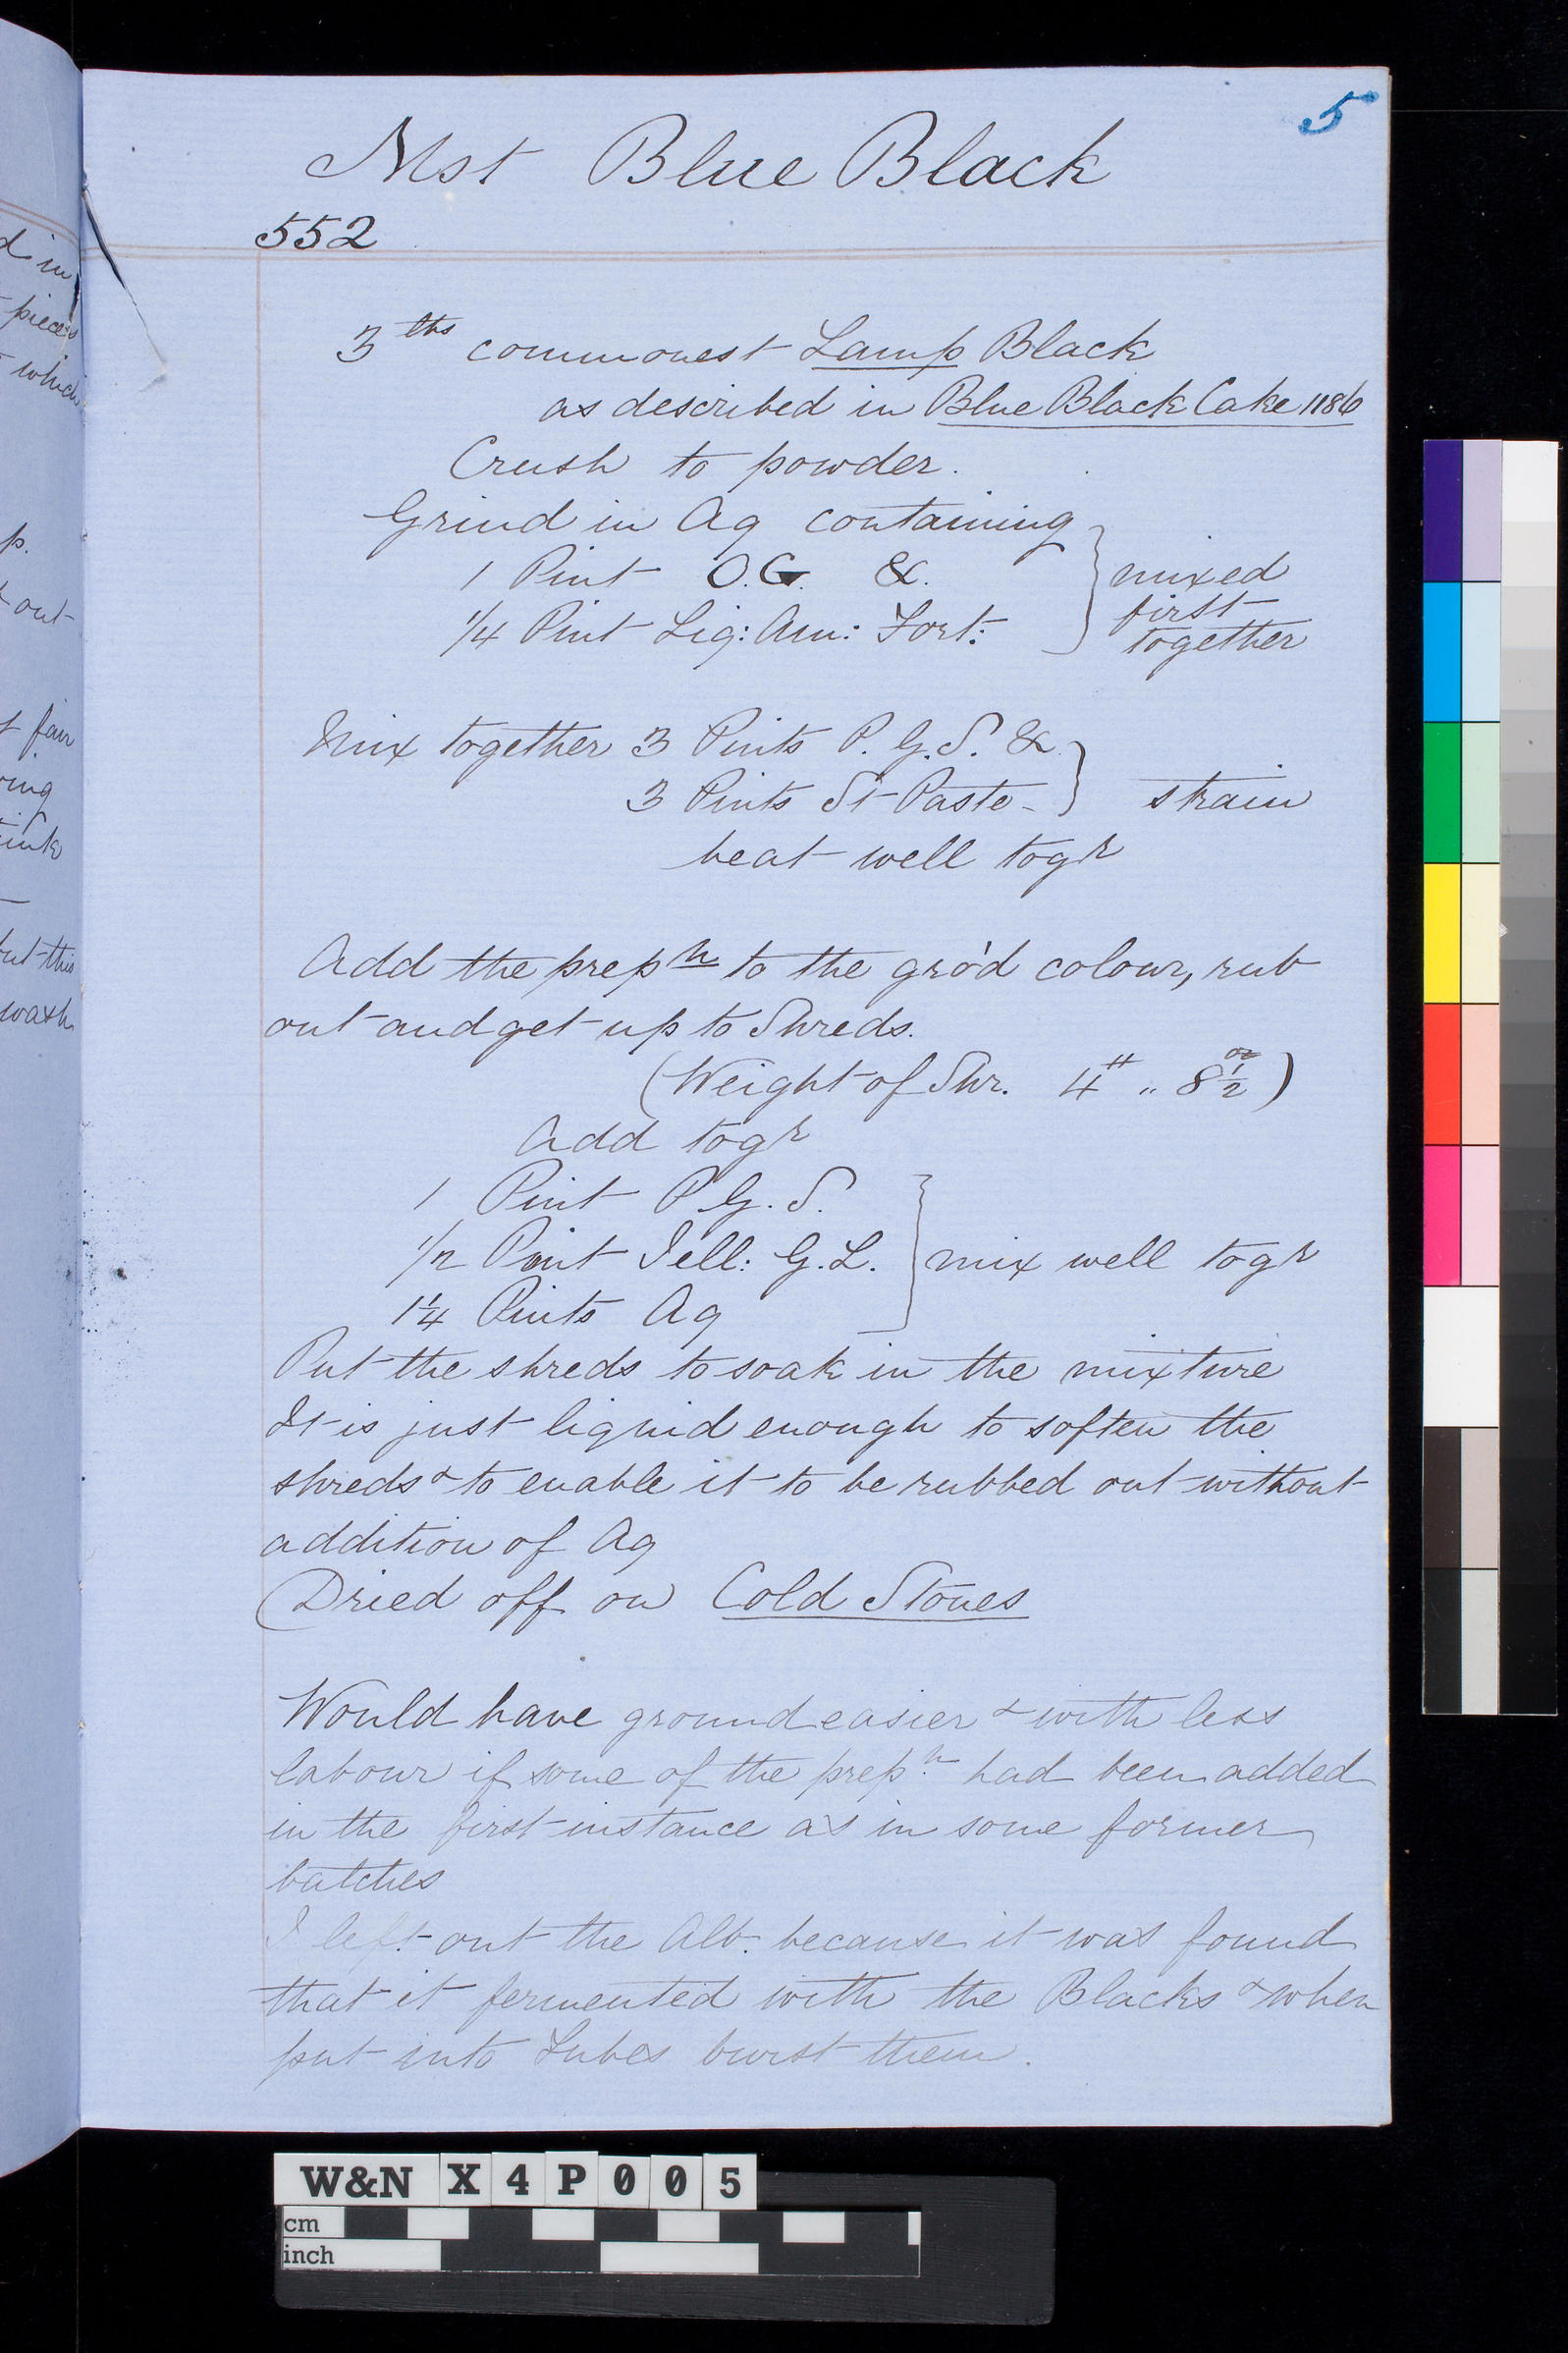 5
Mst Blue Black
552
3 lbs commonest Lamp Black
as described in Blue Black Cake 1186
Crush to powder.
Grind in Aq containing
1 Pint O.G. &. } mixed
1/4 Pint Liq: Am: Fort: first
together
Mix together 3 Pints P. G. S. &
3 Pints St Paste - } strain
beat well togr
Add the prepn to the gro'd colour, rub
out and get up to Shreds.
(Weight of Shr. 4# „ 8 1/2 oz)
Add togr
1 Pint P. G. S.
1/2 Pint Jell: G. L. } mix well togr
1 1/4 Pints Aq
Put the shreds to soak in the mixture
It is just liquid enough to soften the
shreds & to enable it to be rubbed out without
addition of Aq
(Dried off on Cold Stones
Would have ground easier & with less
labour if some of the prepn had been added
in the first instance as in some former
batches
I left out the Alb. because it was found
that it fermented with the Blacks & when
put into Tubes burst them.
d in
pieces
which
p.
out
t fair
ring
but this
wash
W&N X4P005
cm
inch